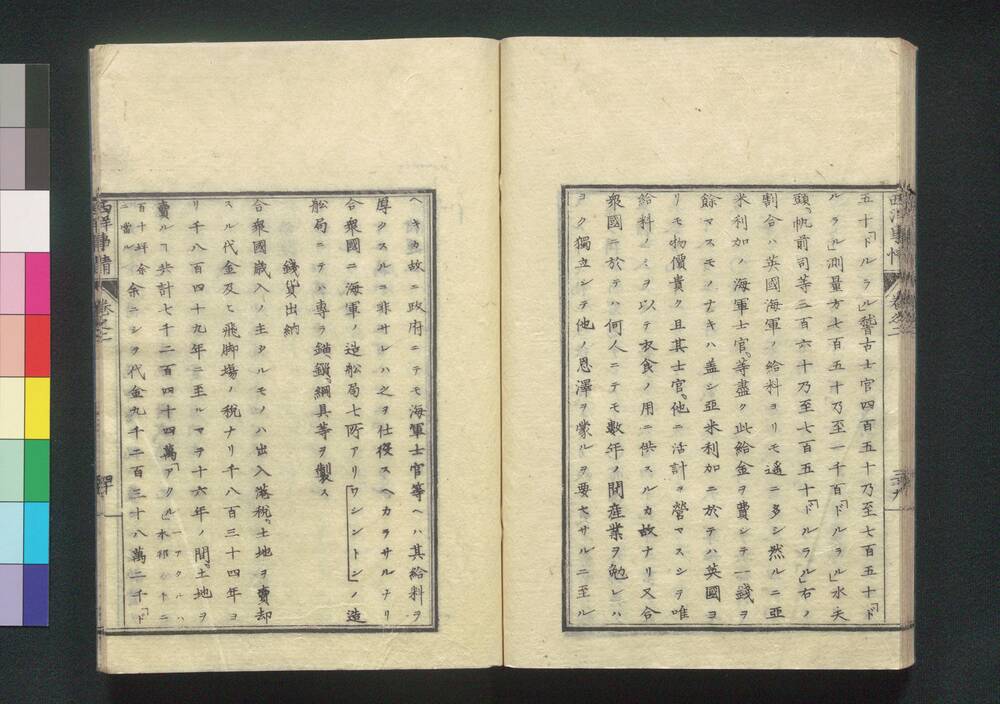 五十「ドルラル」稽古士官四百五十乃至七百五十「ド
ルラル」測量方七百五十乃至一千百「ドルラル」水夫
頭、帆前司等三百六十乃至七百五十「ドルラル」右ノ
割合ハ英國海軍ノ給料ヨリモ遙ニ多シ然ルニ亞
米利加ノ海軍士官等盡ク此給金ヲ費シテ一錢ヲ
餘マスモノナキハ盖シ亞米利加ニ於テハ英國ヨ
リモ物價貴ク且其士官、他ニ活計ヲ營マスシテ唯
給料ノミヲ以テ衣食ノ用ニ供スルカ故ナリ又合
衆國ニ於テハ何人ニテモ數年ノ間産業ヲ勉レハ
ヨク獨立シテ他ノ恩澤ヲ蒙ルヲ要セサルニ至ル
ヘキカ故ニ政府ニテモ海軍士官等ヘハ其給料ヲ
厚クスルニ非サレハ之ヲ仕役スヘカラサルナリ
合衆國ニ海軍ノ造船局七所アリ「ワシントン」ノ造
舩局ニテハ專ラ錨、鎖、綱具等ヲ製ス
錢貨出納
合衆國歳入ノ主タルモノハ出入港税、土地ヲ賣却
スル代金及ヒ飛脚場ノ税ナリ千八百三十四年ヨ
リ千八百四十九年ニ至ルマテ十六年ノ間、土地ヲ
賣ルヿ共計七千二百四十四萬「アクル」
一アクルハ
百十坪余
ニ當ル
余ニシテ代金九千二百三十八萬二千「ド
西洋事情
卷之二